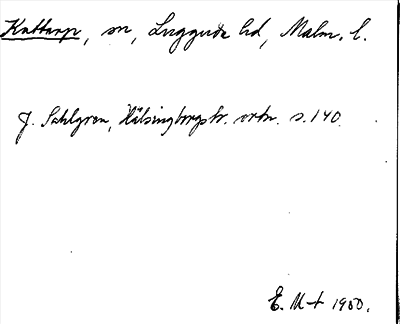 Kattarp, sn, Luggude hd, Malm. l.
J. Sahlgren, Hälsingborgstr. ortn. s. 140.
E. M-t 1950.